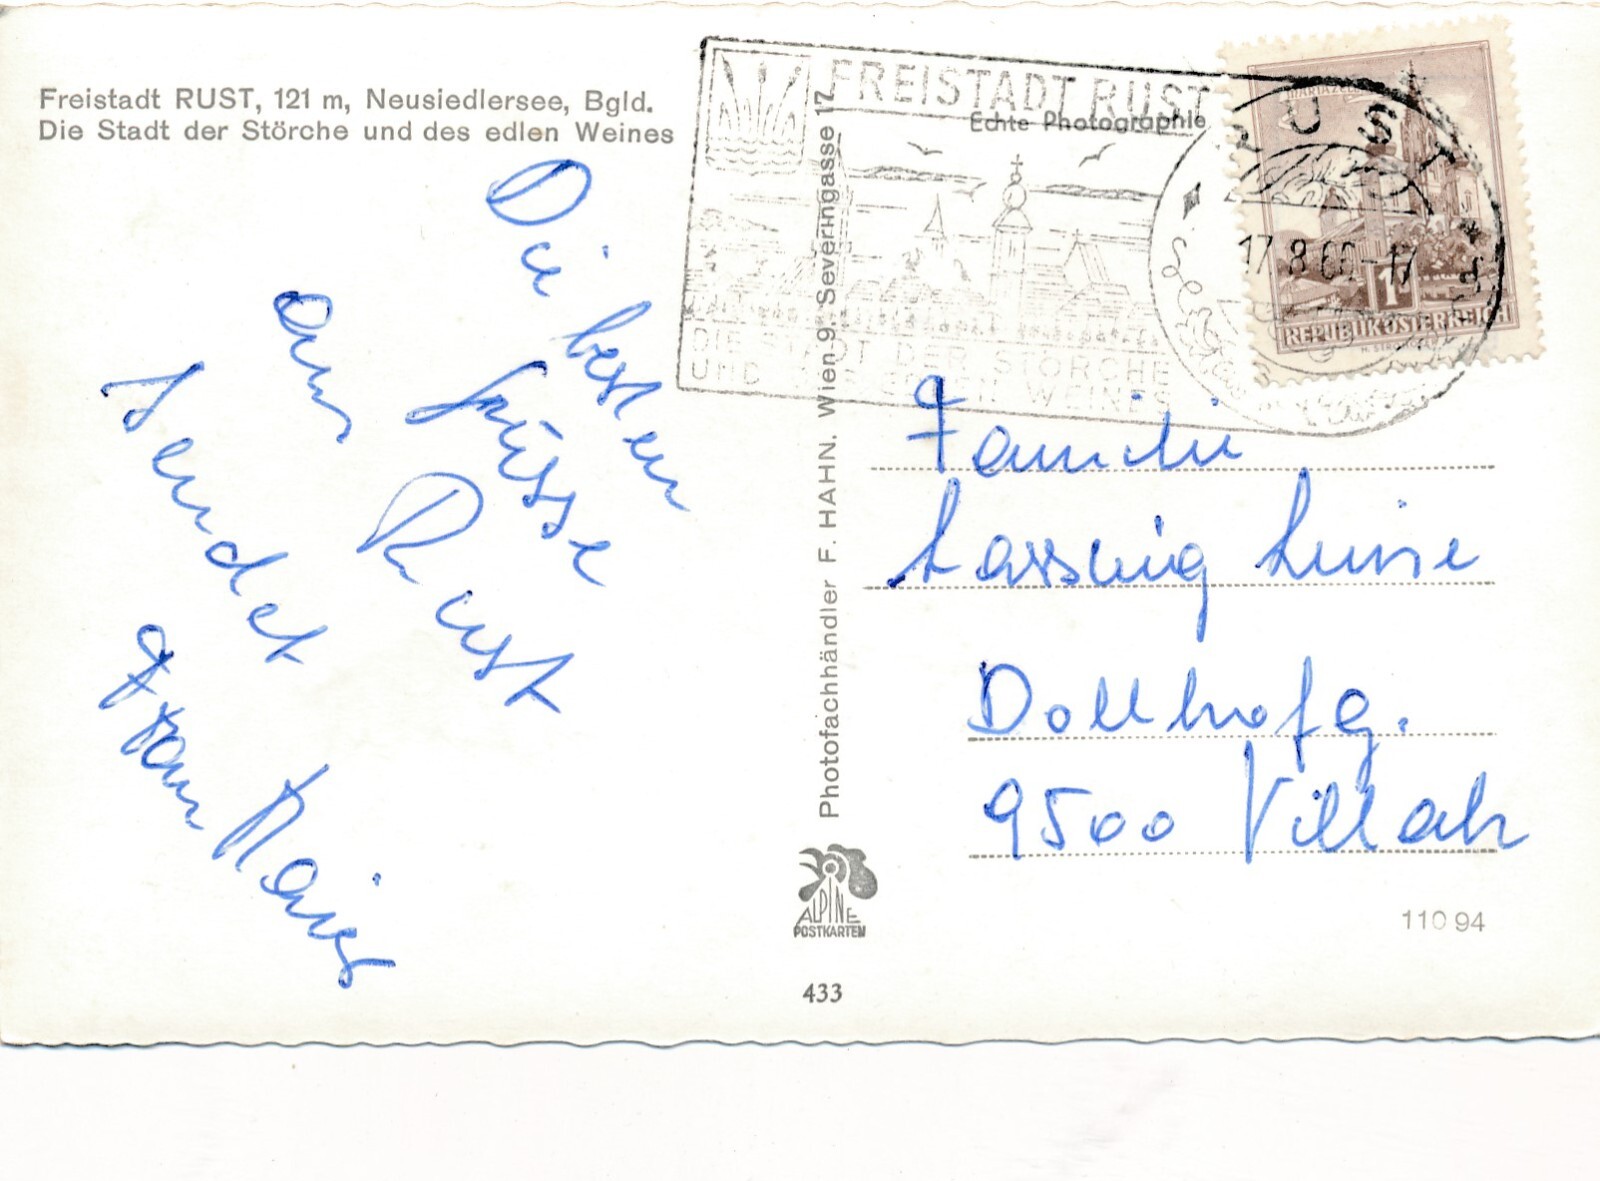 Freistadt RUST, 121 m, Neusiedlersee, Bgld.
Die Stadt der Störche und des edlen Weines
Die besten
Grüsse
aus Rust
sendet
Fam
FREISTADT RUST
DIE STADT DER STÖRCHE
UND DES EDLEN WEINES
Echte Photographie
RUST
17.8.66-17
MARIAZELL
1
REPUBLIK ÖSTERREICH
Photofachhändler F. HAHN. Wien 9, Severingasse 17
Familie
Lassnig Luise
Dollhofg.
9500 Villach
ALPINE
POSTKARTEN
110 94
433